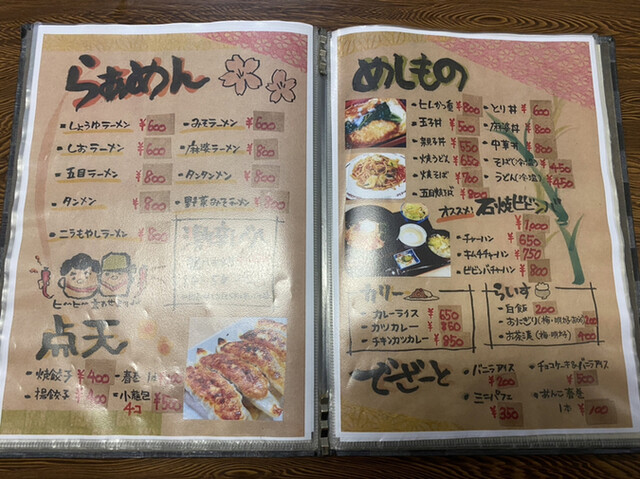 らぁめん
・しょうゆラーメン ¥600 ・みそラーメン ¥600
・しおラーメン ¥600 ・麻婆ラーメン ¥800
・五目ラーメン ¥800 ・タンタンメン ¥800
・タンメン ¥800 ・野菜みそラーメン ¥800
・ニラもやしラーメン ¥800
点天
・焼餃子 ¥400 ・春巻
・揚餃子 ¥400 ・小龍包 4コ ¥500
めしもの
・ヒレカツ重 ¥800 ・とり丼 ¥600
・玉子丼 ¥500 ・麻婆丼 ¥800
・親子丼 ¥550 ・中華丼
・焼うどん ¥650 ・そば(冷・温) ¥450
・焼そば ¥700 ・うどん(冷・温) ¥450
・五目焼そば ¥800
オススメ! 石焼ビビンバ ¥1,000
・チャーハン ¥650
・キムチチャーハン ¥750
・ビビンバチャーハン ¥800
カリー
・カレーライス ¥650
・カツカレー ¥850
・チキンカツカレー ¥850
らいす
・白飯 200
・おにぎり
・お茶漬(梅・明太子) 400
でざーと
・バニラアイス ¥200
・チョコケーキ&バニラアイス ¥500
・ミニパフェ ¥350
・あんこ春巻 1本 ¥100